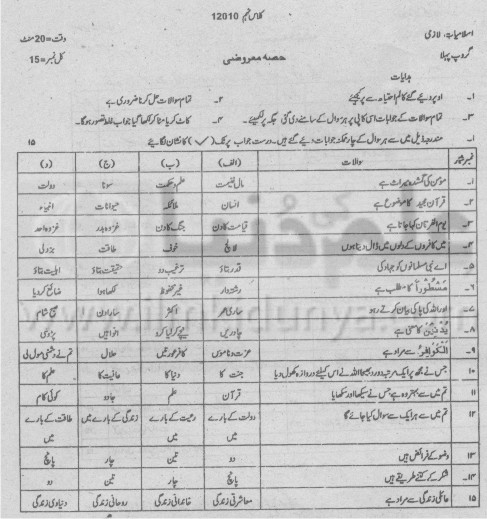 کلاس نہم 12010
اسلامیات لازمی
وقت=20 منٹ
گروپ پہلا
حصہ معروضی
کل نمبر=15
ہدایات
۱۔ اوپر دیئے گئے کالم احتیاط سے پر کیجئے ۲۔ تمام سوالات حل کرنا ضروری ہے
۳۔ تمام سوالات کے جوابات اسی کاپی پر ہر سوال کے سامنے دی گئی جگہ پر لکھیئے۔ ۴۔ کاٹ کر یا مٹا کر لکھا گیا جواب غلط تصور ہوگا۔
۱۔ مندرجہ ذیل میں سے ہر سوال کے چار ممکنہ جوابات دیئے گئے ہیں۔ درست جواب پر ٹک (✓) کا نشان لگایئے ۱۵
نمبر شمار سوالات (الف) (ب) (ج) (د)
۱۔ مومن کی گمشدہ میراث ہے مال غنیمت علم و حکمت سونا دولت
۲۔ قرآن مجید کا موضوع ہے انسان ملائکہ حیوانات انبیاء
۳۔ یوم الفرقان کہا جاتا ہے قیامت کا دن جنگ کا دن غزوہ بدر غزوہ احد
۴۔ میں کافروں کے دلوں میں ڈال دیتا ہوں لالچ خوف طاقت بزدلی
۵۔ اے نبی مسلمانوں کو جہاد کی قدر بتاؤ ترغیب دو حقیقت بتاؤ اہمیت بتاؤ
۶۔ مَسْطُورًا کا مطلب ہے رشتہ دار غیر محفوظ لکھا ہوا ضائع کر دیا
۷۔ اور اللہ کی پاکی بیان کرتے رہو ساری عمر اکثر سارا دن صبح شام
۸۔ يُدْنِينَ کا معنی ہے چادریں نیچے کر لیا کرو افواہیں پڑوسی
۹۔ الْكَوَافِرِ سے مراد ہے عزت و ناموس کافر عورتیں حلال تم نے دشمنی مول لی
۱۰ جس نے مجھ پر ایک مرتبہ درود بھیجا اللہ نے اس کیلئے دروازہ کھول دیا جنت کا دنیا کا عافیت کا علم کا
۱۱ تم میں سے بہتر وہ ہے جس نے سیکھا اور سکھایا قرآن علم جادو کوئی کام
۱۲ تم میں سے ہر ایک سے سوال کیا جائے گا دولت کے بارے میں رعیت کے بارے میں زندگی کے بارے میں طاقت کے بارے میں
۱۳ وضو کے فرائض ہیں دو تین چار پانچ
۱۴۔ شکر کے کتنے طریقے ہیں پانچ چار تین دو
۱۵ عائلی زندگی سے مراد ہے معاشرتی زندگی خاندانی زندگی روحانی زندگی دنیاوی زندگی